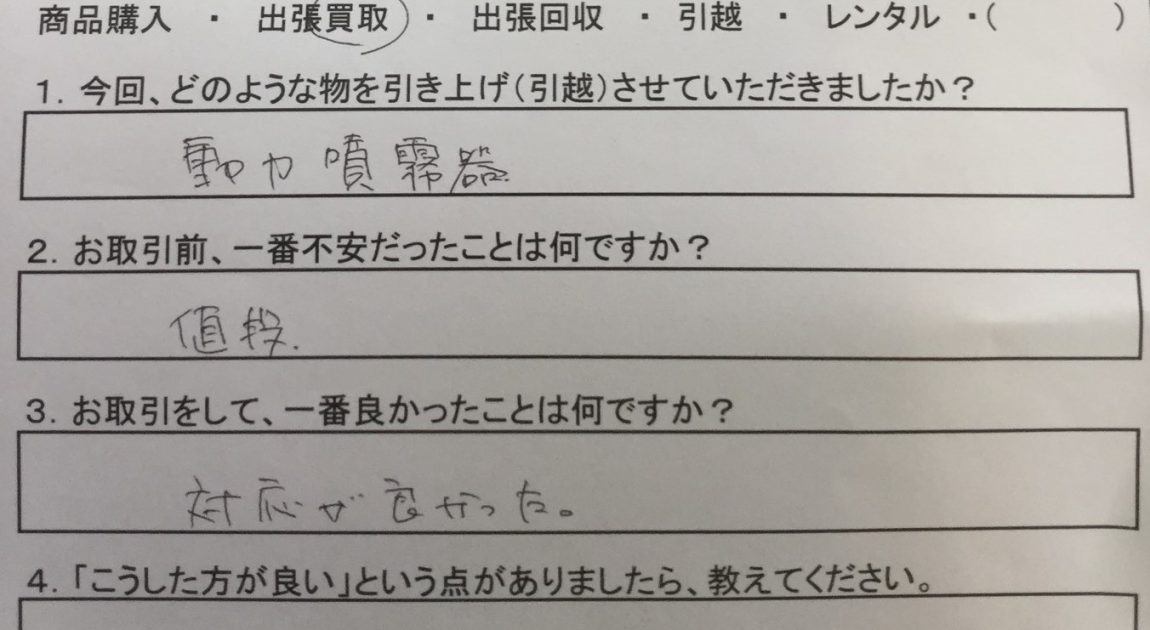 商品購入 ・ 出張買取 ・ 出張回収 ・ 引越 ・ レンタル ・( )
1. 今回、どのような物を引き上げ(引越)させていただきましたか？
動力噴霧器.
2. お取引前、一番不安だったことは何ですか？
値段.
3. お取引をして、一番良かったことは何ですか？
対応が良かった。
4.「こうした方が良い」という点がありましたら、教えてください。